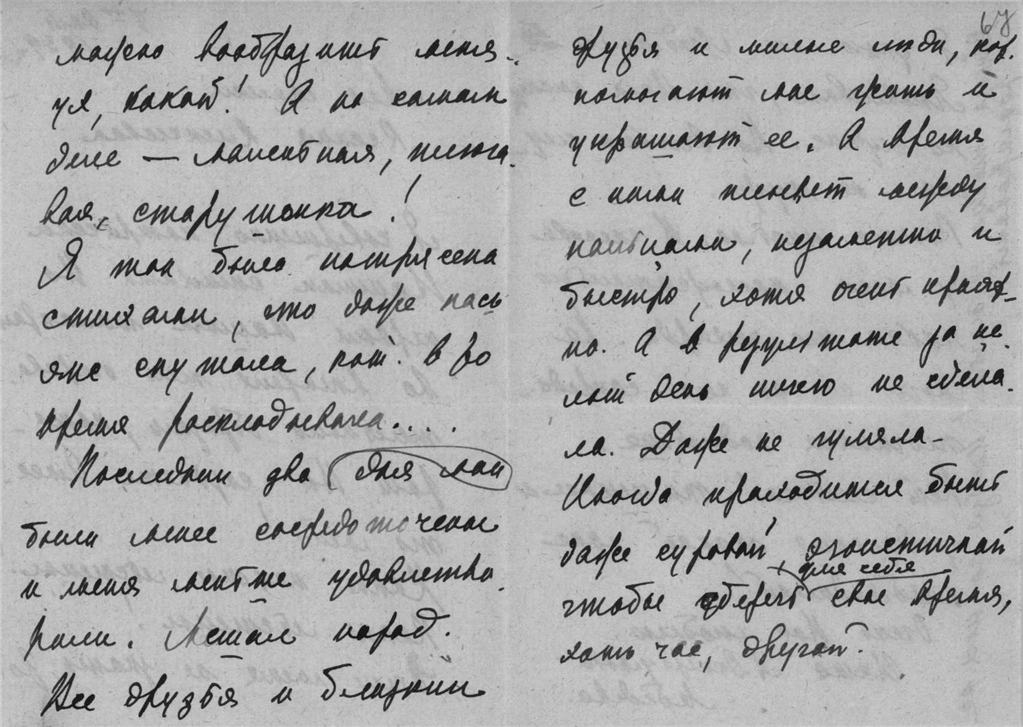 можно вообразить меня.
уя, какой! А на самом
деле — маленькая, плюга.
вая, старушонка!
Я так была потрясена
стихами, что даже пась
янс спутала, кот. в во
время раскладывала....
Последнии два дня мои
были менее сосредоточены
и меня меньше удовлетво.
рили. Мешал народ.
Все друзья и близкии
67
друзья и милые люди, кот.
помогают мне жить и
украшают ее. А время
с ними плывет между
пальцами, незаметно и
быстро, хотя очень прият-
но. А в результате за це
лый день ничего не сдела.
ла. Даже не гуляла-
Иногда приходится быть
даже суровой, эгоистичной
для себя
чтобы уберечь свое время,
хоть час, другой.